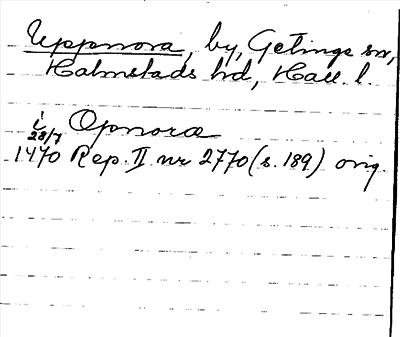 Uppnora, by, Getinge sn,
Halmstads hd, Hall. l.
i Opnora
28/7
1470 Rep. II nr 2770 (s. 189) orig.